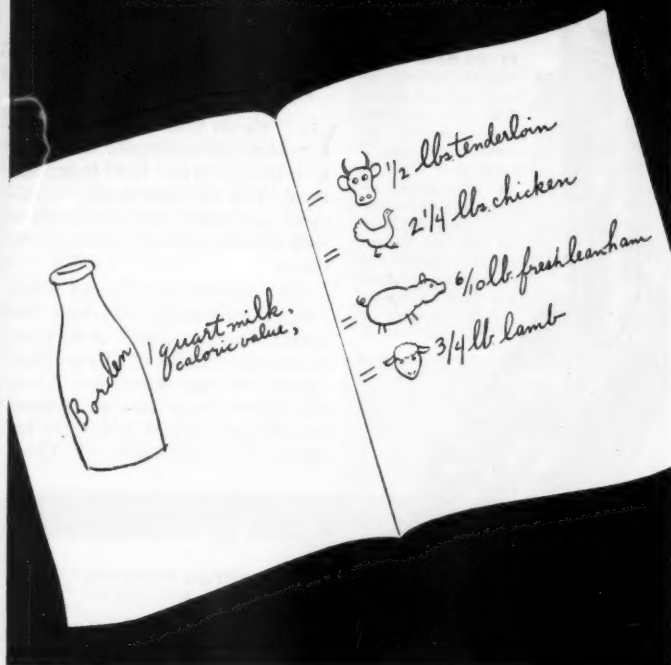 Borden
1 quart milk,
caloric value,
= 1/2 lbs tenderloin
= 2 1/4 lbs. chicken
= 6/10 lb. fresh lean ham
= 3/4 lb. lamb